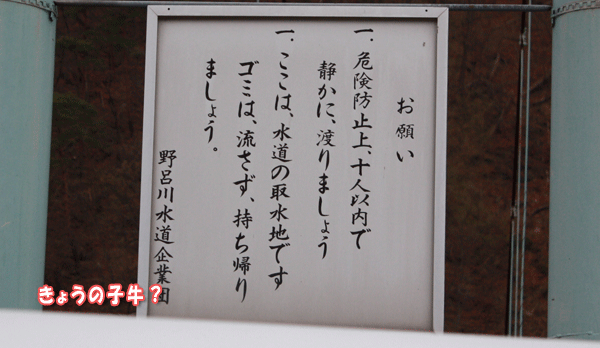 お願い
一、危険防止上、十人以内で
静かに、渡りましょう
一、ここは、水道の取水地です
ゴミは、流さず、持ち帰り
ましょう。
野呂川水道企業団
きょうの子牛？